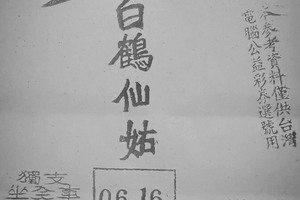 本參考資料僅供台灣
電腦公益彩券選號用
白鶴仙姑
獨支
坐全車
06.16